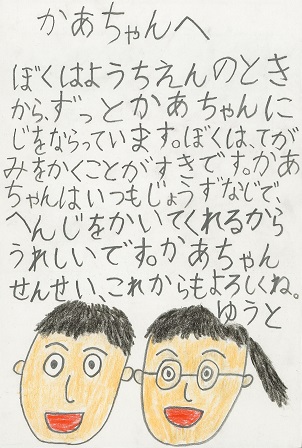 かあちゃんへ
ぼくはようちえんのとき
から、ずっとかあちゃんに
じをならっています。ぼくは、てが
みをかくことがすきです。かあ
ちゃんはいつもじょうずなじで、
へんじをかいてくれるから
うれしいです。かあちゃん
せんせい、これからもよろしくね。
ゆうと